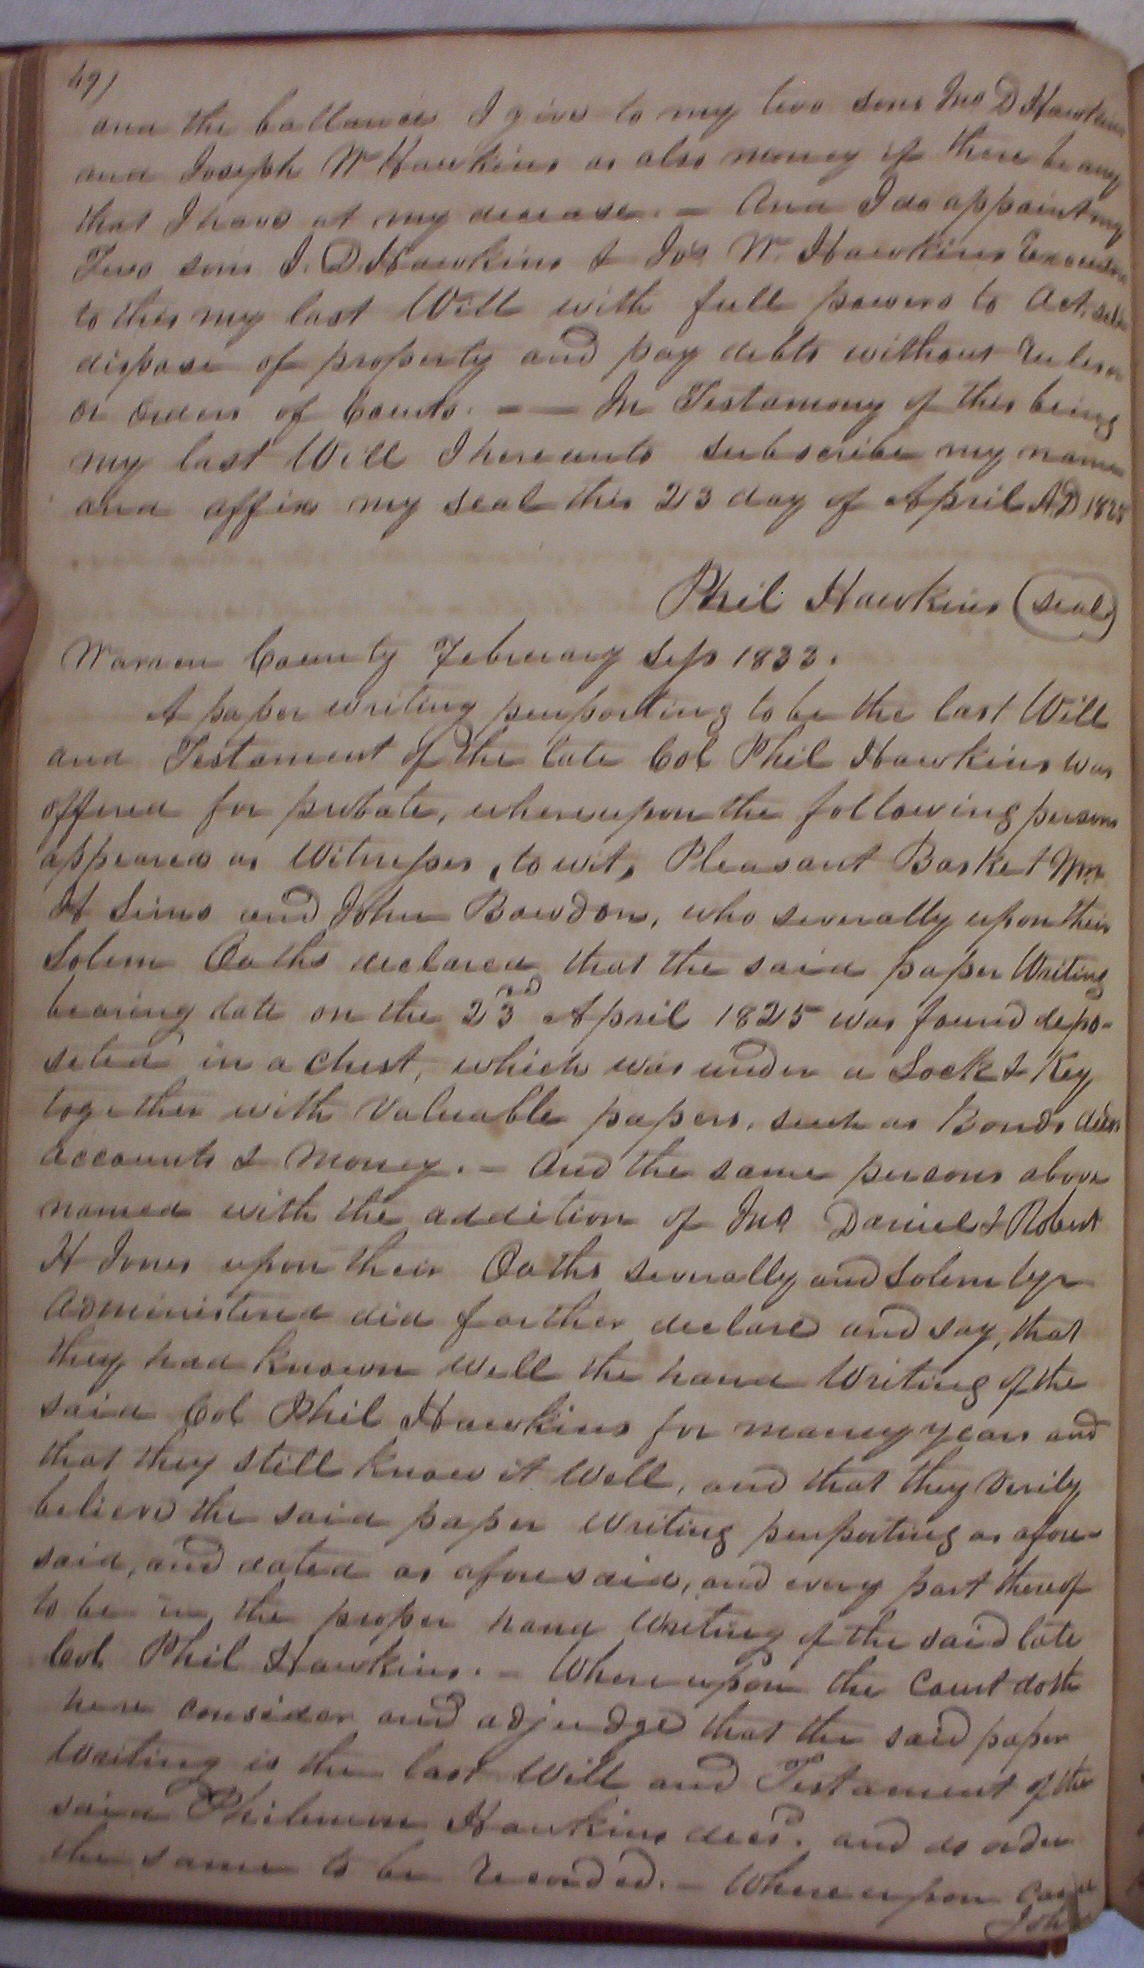 49)
and the ballance I give to my two sons Jno D Hawkins
and Joseph W Hawkins as also money if there be any
that I have at my decease. — And I do appoint my
Two sons J. D. Hawkins & Jos W. Hawkins
to this my last Will with full powers to Act, sell
dispose of property and pay debts without
or orders of Courts. — — In Testamony of this being
my last Will I hereunto subscribe my name
and affix my seal this 23 day of April AD 1825
Phil Hawkins (seal)
Warren County February Sess 1833.
A paper writing purporting to be the last Will
and Testament of the late Col Phil Hawkins was
offered for probate, whereupon the following persons
appeared as Witnesses, to wit, Pleasant Basket Wm
H Sims and John Bowdon, who severally upon their
Solem Oaths declared that the said paper Writing
bearing date on the 23rd April 1825 was found depo-
seted in a chest, which was under a Lock & Key
together with valuable papers, such as Bonds deeds
accounts & Money. — And the same persons above
named with the addition of Jno Daniel & Robert
H Jones upon their Oaths severally and Solemly
administered did farther declare and say, that
they had known well the hand Writing of the
said Col Phil Hawkins for many years and
that they still know it Well, and that they verily
believe the said paper writing purporting as afore-
said, and dated as aforesaid, and every part thereof
to be in the proper hand Writing of the said late
Col Phil Hawkins. — Whereupon the Court doth
here consider and adjudge that the said paper
Writing is the last Will and Testament of the
said Philemon Hawkins decd. and do order
the same to be Recorded. — Whereupon came
John